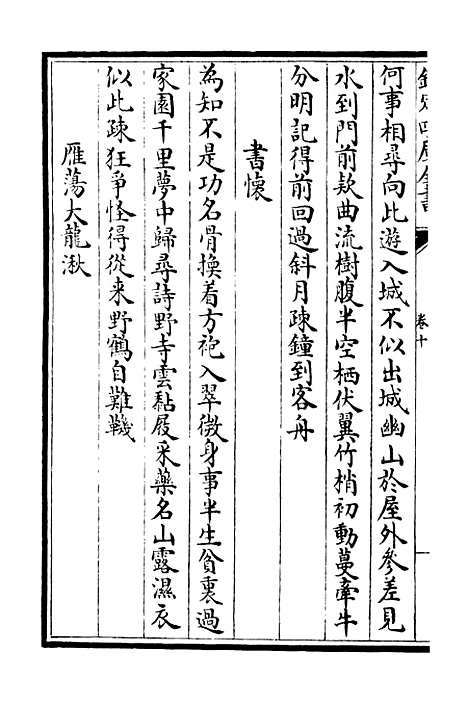 欽定四庫全書
卷十
何事相尋向此遊入城不似出城幽山於屋外參差見
水到門前款曲流樹腹半空栖伏翼竹梢初動蔓牽牛
分明記得前回過斜月疎鐘到客舟
書懷
為知不是功名骨換着方袍入翠微身事半生貧裏過
家園千里夢中歸尋詩野寺雲黏屐采藥名山露濕衣
似此疎狂爭怪得從来野鶴自難鞿
雁蕩大龍湫